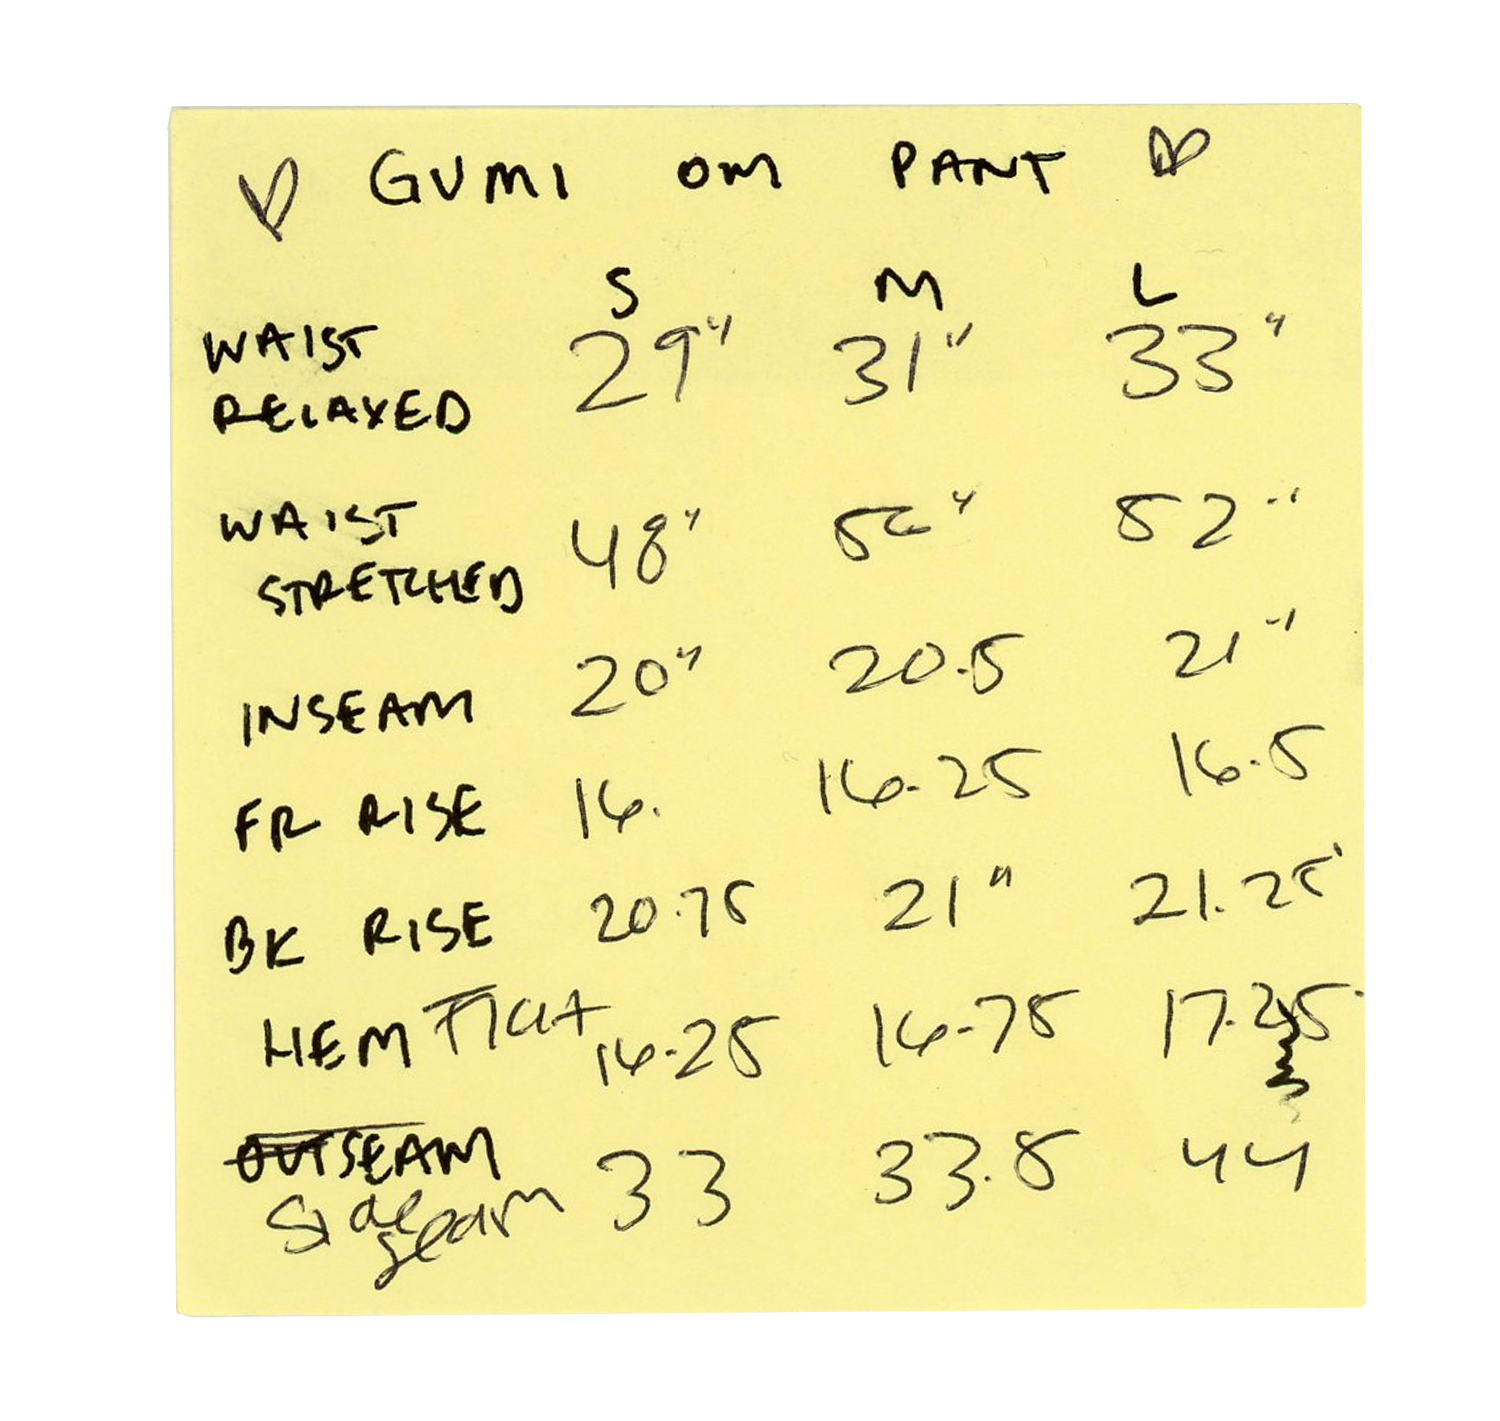 GUMI OM PANT
S M L
WAIST RELAXED 29" 31" 33"
WAIST STRETCHED 48" 50" 52"
INSEAM 20" 20.5 21"
FR RISE 16. 16.25 16.5
BK RISE 20.75 21" 21.25
HEM Flat 16.25 16.75 17.25
OUTSEAM 33 33.5 44
Side seam